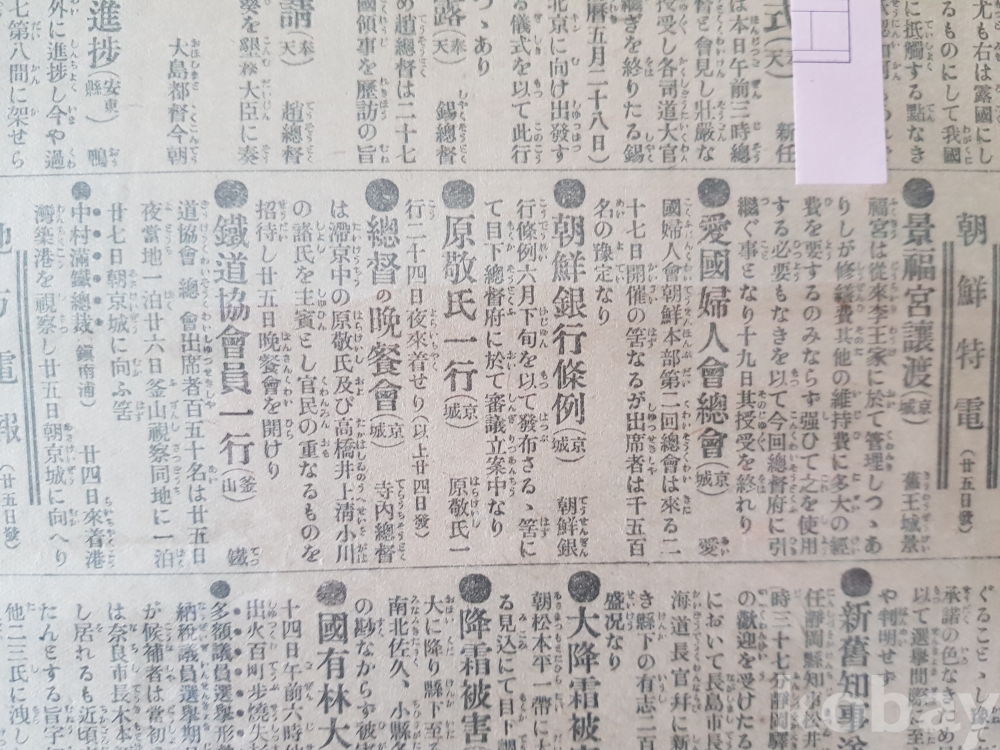 尤も右は露國にし
るものにして我國
に抵觸する點なき
式(天) 新任
は本日午前三時總
督と會見し壯嚴な
授受し各司道大官
繼ぎを終りたる錫
曆五月二十八日)
北京に向け出發す
る儀式を以て此行
つゝあり
露(奉天) 錫總督
め趙總督は二十七
國領事を歷訪の旨
請(奉天) 趙總督
大臣に奏
大島都督今朝
進捗(安東縣) 鴨
外に進捗し今や過
七第八間に架せら
朝鮮特電(廿五日發)
●景福宮讓渡(京城) 舊王城景
福宮は從來李王家に於て管理しつゝあ
りしが修繕費其他の維持費に多大の經
費を要するのみならず強ひて之を使用
する必要もなきを以て今回總督府に引
繼ぐ事となり十九日其授受を終れり
●愛國婦人會總會(京城) 愛
國婦人會朝鮮本部第二回總會は來る二
十七日開催の筈なるが出席者は千五百
名の豫定なり
●朝鮮銀行條例(京城) 朝鮮銀
行條例六月下旬を以て發布さるゝ筈に
て目下總督府に於て審議立案中なり
●原敬氏一行(京城) 原敬氏一
行二十四日夜來着せり(以上廿四日發)
●總督の晩餐會(京城) 寺内總督
は滯京中の原敬氏及び高橋井上清小川
の諸氏を主賓とし官民の重なるものを
招待し廿五日晩餐會を開けり
●鐵道協會員一行(釜山) 鐵
道協會總會出席者百五十名は廿五日
夜當地一泊廿六日釜山視察同地に一泊
廿七日朝京城に向ふ筈
●中村滿鐵總裁(鎭南浦) 廿四日來着港
灣築港を視察し廿五日朝京城に向へり
地方電報(廿五日發)
ぐることゝし豫て
承諾の色なきため
以て選擧間際に至
や判明せず
●新舊知事
任靜岡縣知事松井
時三十七分靜岡驛
の歡迎を受けたる
において長島市長
海道長官井に新
き縣下の有志二百
盛況なり
●大降霜被害
朝松本平一帶に大
る見込にて目下調
●降霜被害
大に降り縣下至る
南北佐久、小縣各
の尠なからず被害
●國有林大
十四日午前六時
出火百町步燒失
●多額議員選擧形
納稅議員選擧期
が候補者は當初
は奈良市長木本
し居れるも近頃
たんとする旨宇
他二三氏に洩し